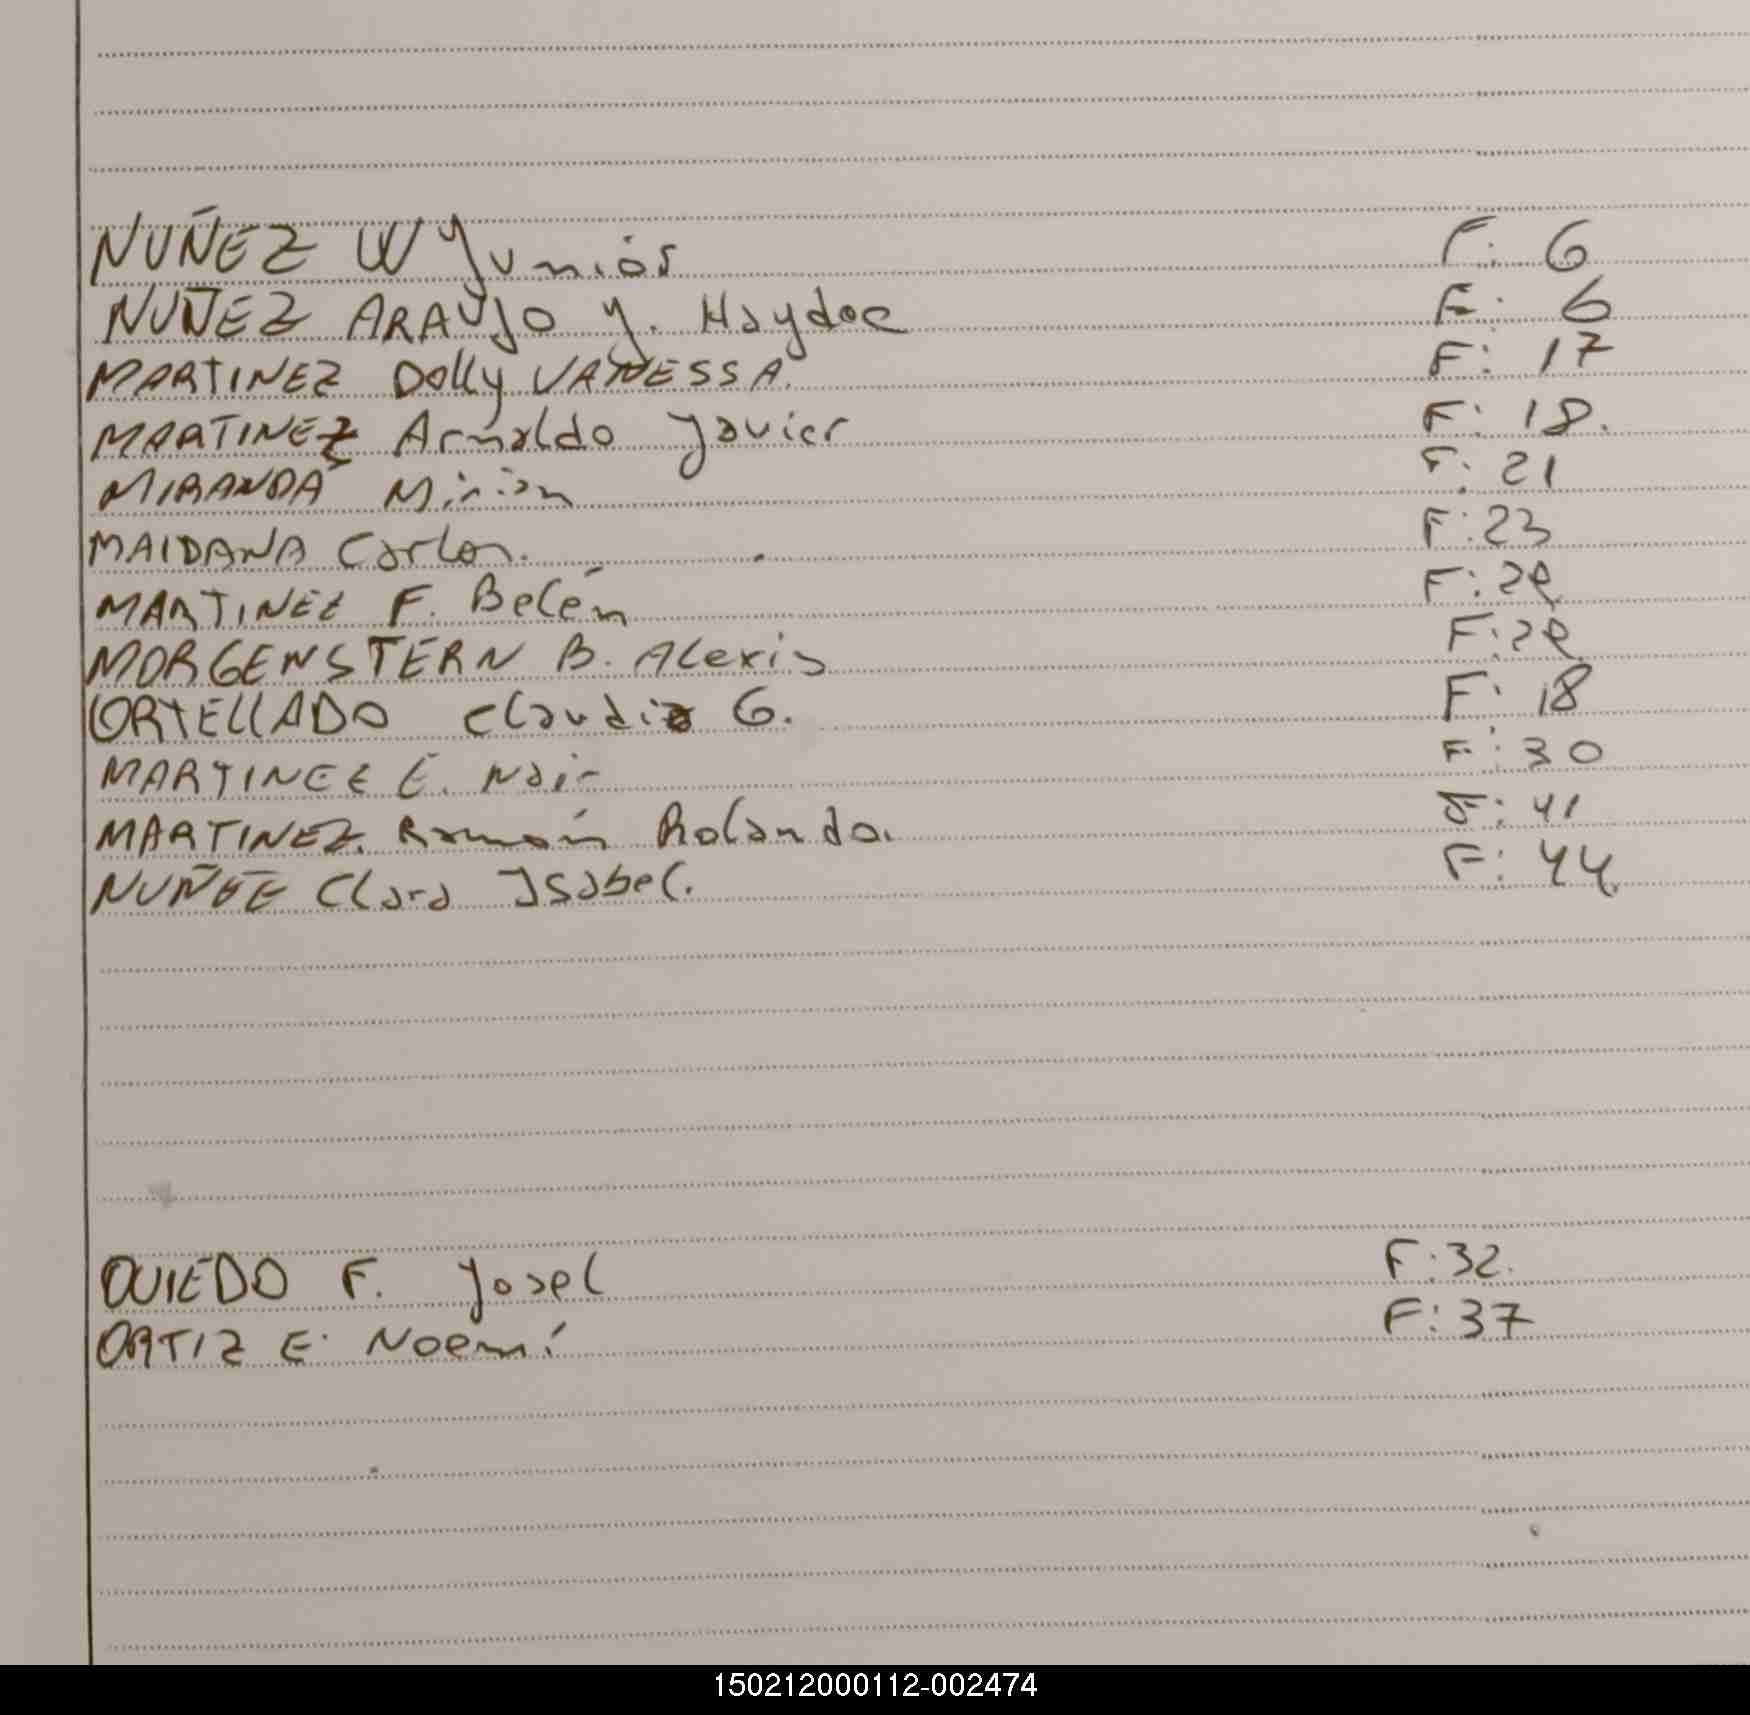 NUÑEZ W Yunior F: 6
NUÑEZ ARAUJO Y. Haydee F: 6
MARTINEZ Dolly VANESSA. F: 17
MARTINEZ Arnaldo Javier F: 18.
MIRANDA Mirian F: 21
MAIDANA Carlos. F: 23
MARTINEZ F. Belén F:
MORGENSTERN B. Alexis F:
ORTELLADO Claudio G. F: 18
MARTINEZ E. Nair F: 30
MARTINEZ. Ramón Rolando. F: 41
NUÑEZ Clara Isabel. F: 44.
OVIEDO F. Yosel F: 32.
ORTIZ E. Noemí F: 37
150212000112-002474